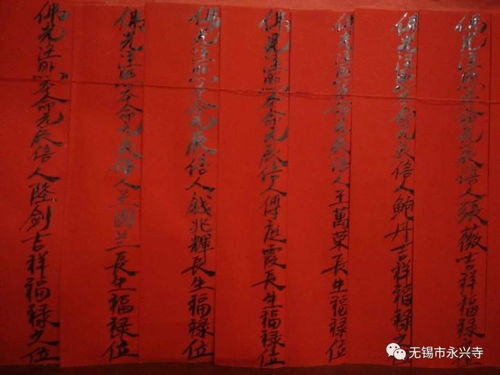 佛光注照本命元辰信人張薇吉祥福祿位
佛光注照本命元辰信人鮑丹吉祥福祿位
佛光注照本命元辰信人王萬榮長生福祿位
佛光注照本命元辰信人傅庭霞長生福祿位
佛光注照本命元辰信人錢兆輝長生福祿位
佛光注照本命元辰信人國兰長生福祿位
佛光注照本命元辰信人陸劍吉祥福祿之位
无锡市永兴寺